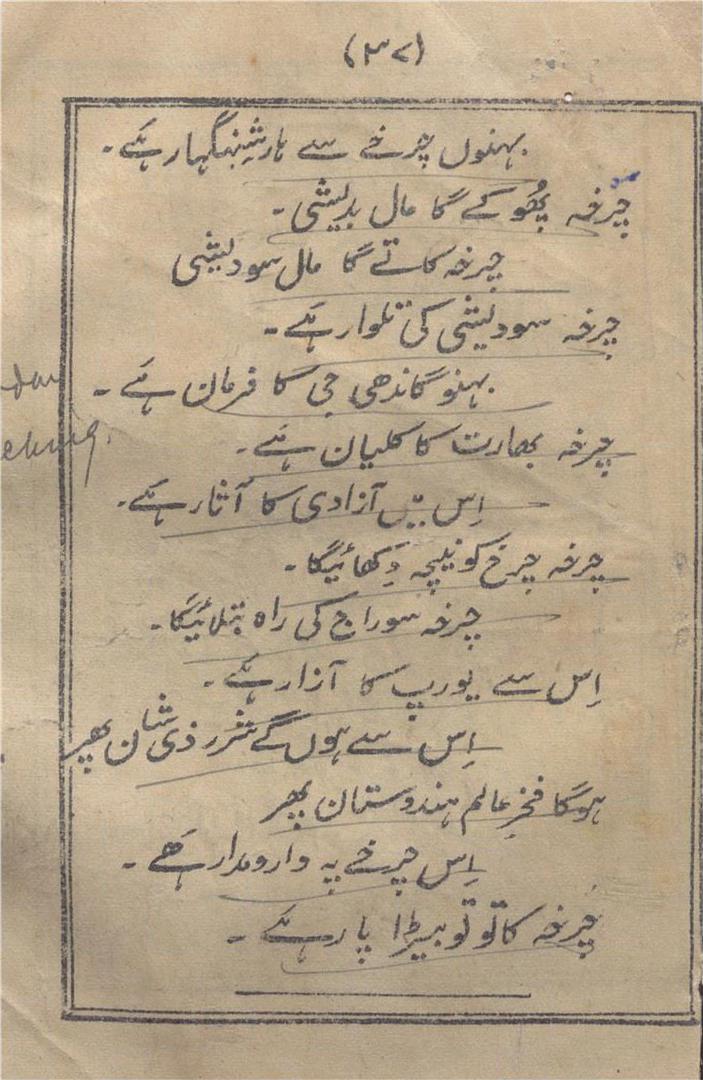 (۳۷)
بہنوں چرخے سے ہار شنگہار ہے۔
چرخہ پُھو کے گا مال بدیشی۔
چرخہ کاتے گا مال سودیشی
چرخہ سودیشی کی تلوار ہے۔
بہنو گاندھی جی کا فرمان ہے۔
چرخہ بھارت کا کلیان ہے۔
اِس میں آزادی کا آثار ہے۔
چرخہ چرخ کو نیچہ دِکھائیگا۔
چرخہ سوراج کی راہ بتلائیگا۔
اِس سے یورپ کا آزار ہے۔
اِس سے ہوں گے شرر ذی شان پھر
ہوگا فخرِ عالم ہندوستان پھر
اِس چرخے پہ دارومدار ھے۔
چرخہ کاتو تو بیڑا پار ہے۔